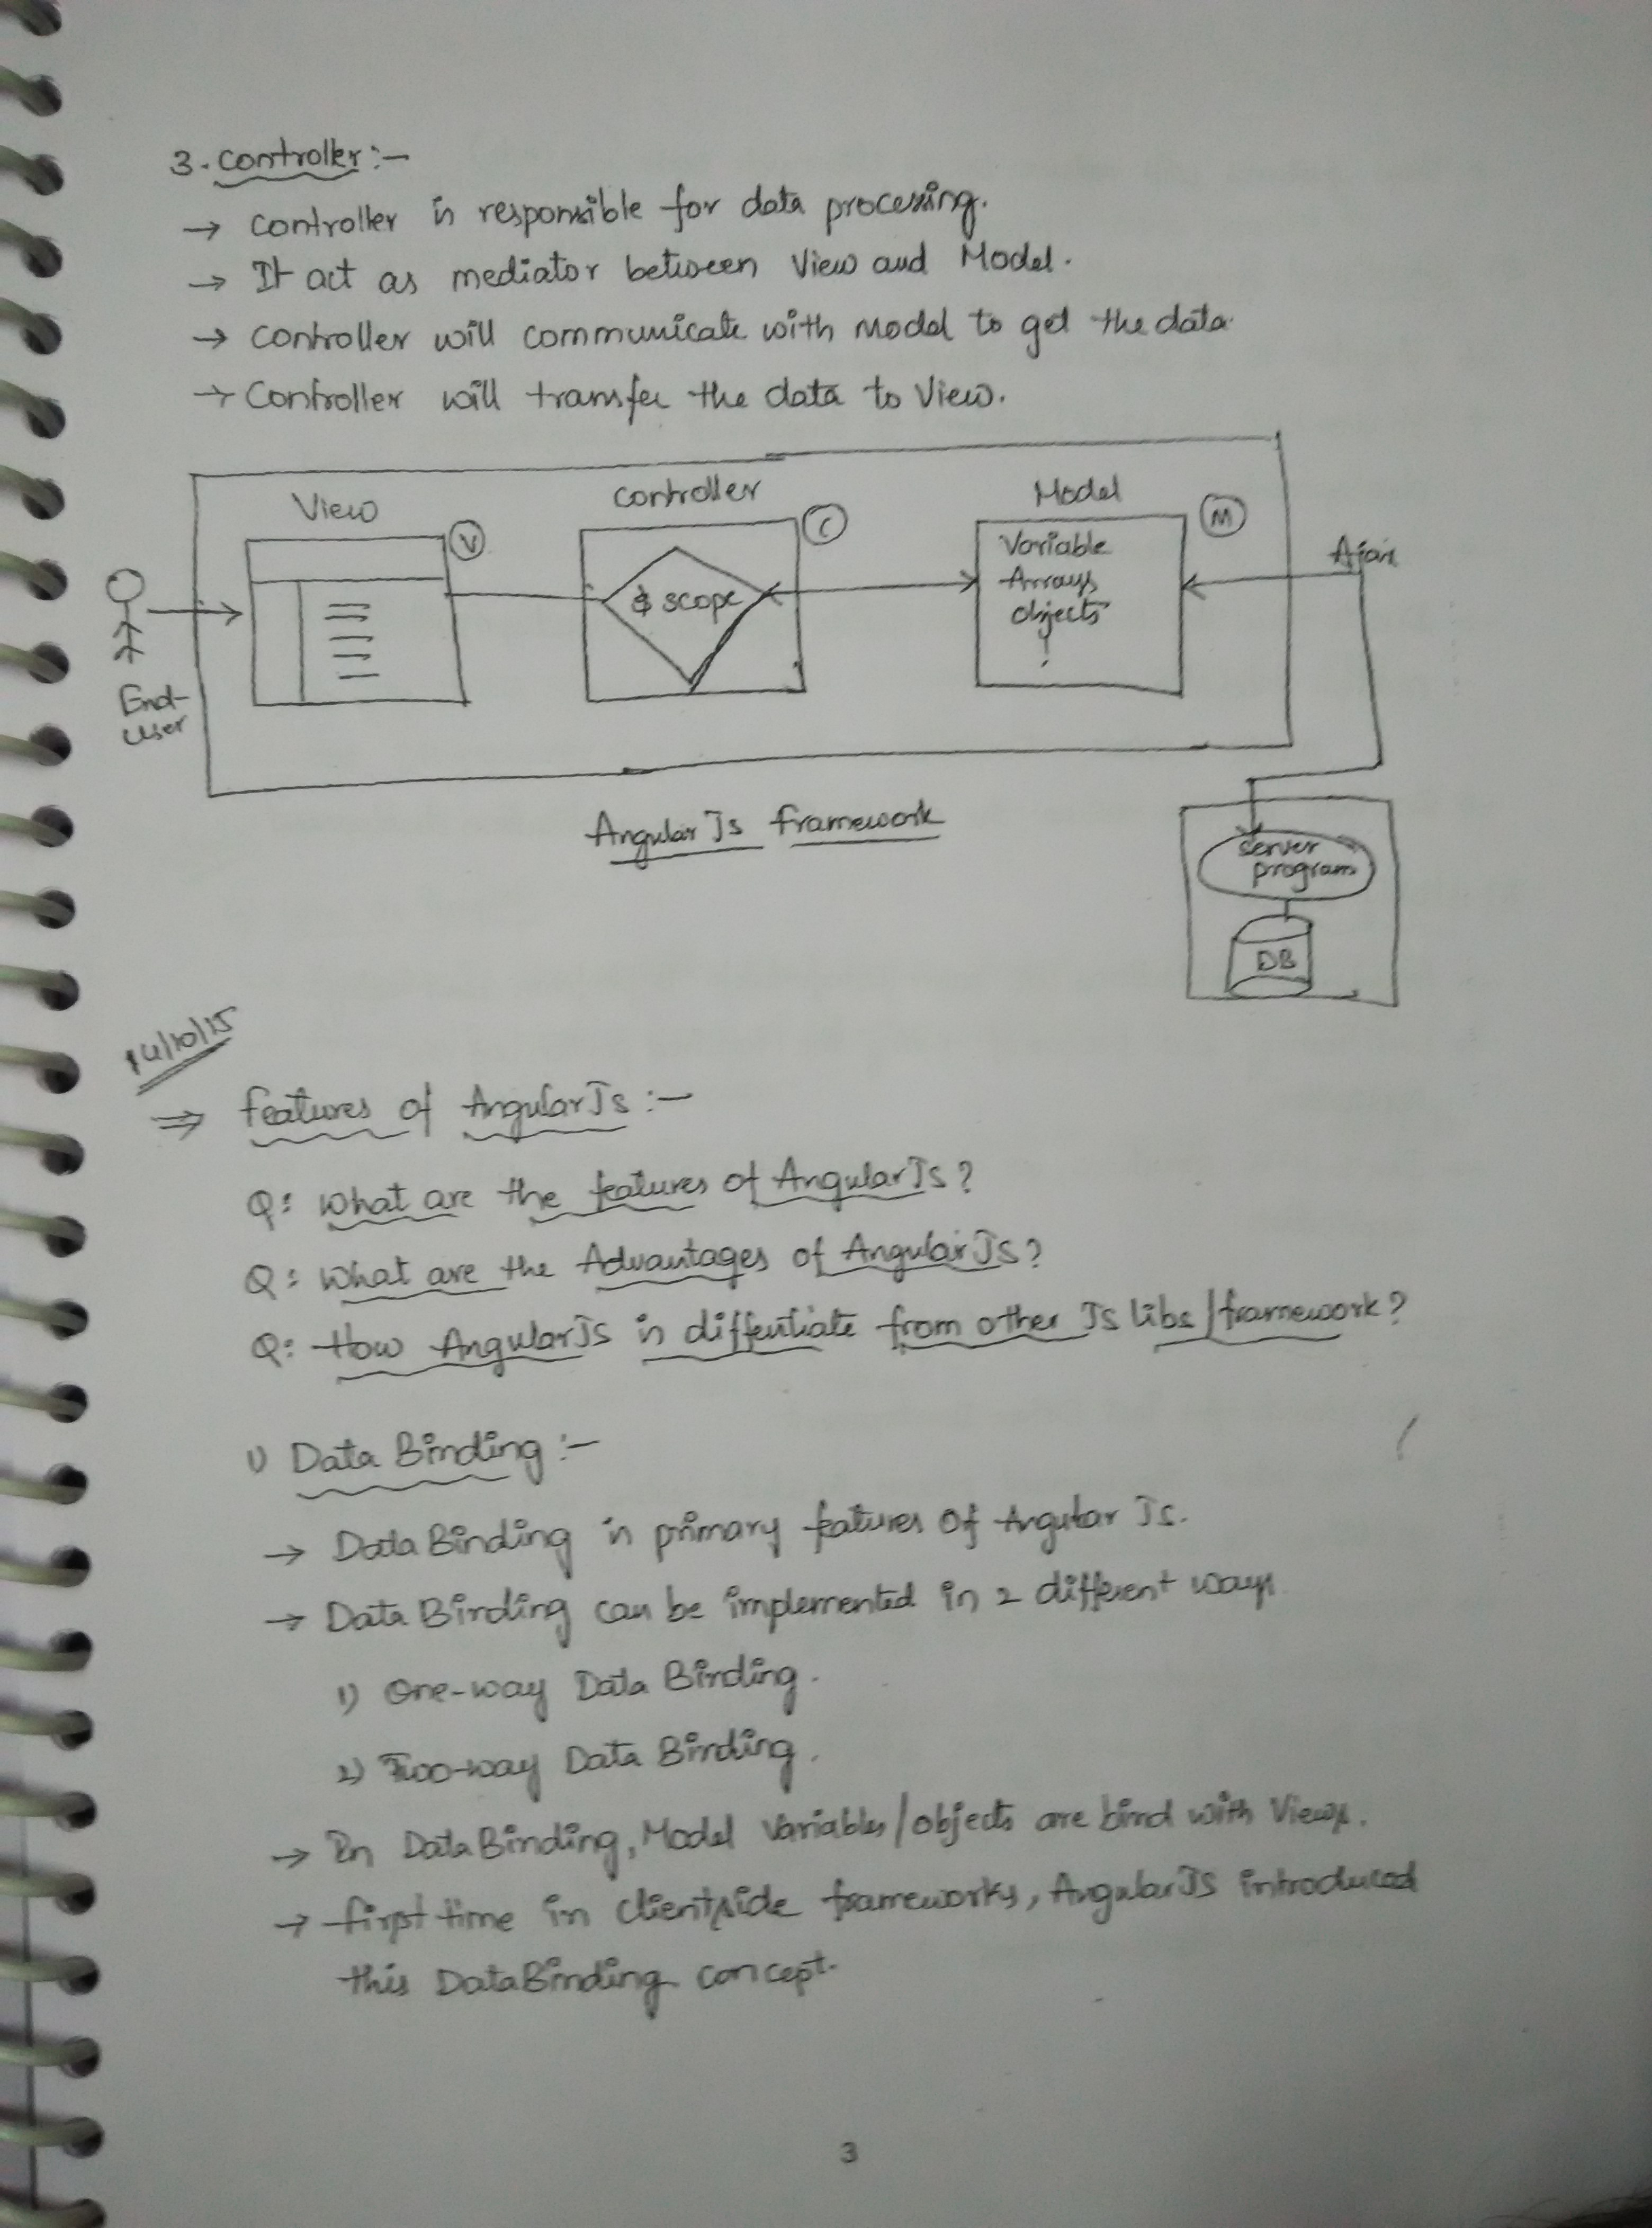 3. Controller :-
→ Controller is responsible for data processing.
→ It act as mediator between View and Model.
→ Controller will communicate with Model to get the data.
→ Controller will transfer the data to View.
View Controller Model
V C M
Variable
Arrays
Objects
Ajax
$ scope
End-
User
AngularJs framework
server
program
DB
14/10/15
⇒ features of AngularJs :-
Q: What are the features of AngularJs?
Q: What are the Advantages of AngularJS?
Q: How AngularJS is diffentiate from other Js libs/framework?
1) Data Binding :-
→ Data Binding is primary features of Angular Js.
→ Data Binding can be implemented in 2 different ways.
1) One-way Data Binding.
2) Two-way Data Binding.
→ In Data Binding, Model Variables/objects are bind with Views.
→ first time in clientside frameworks, AngularJS introduced
this DataBinding concept.
3